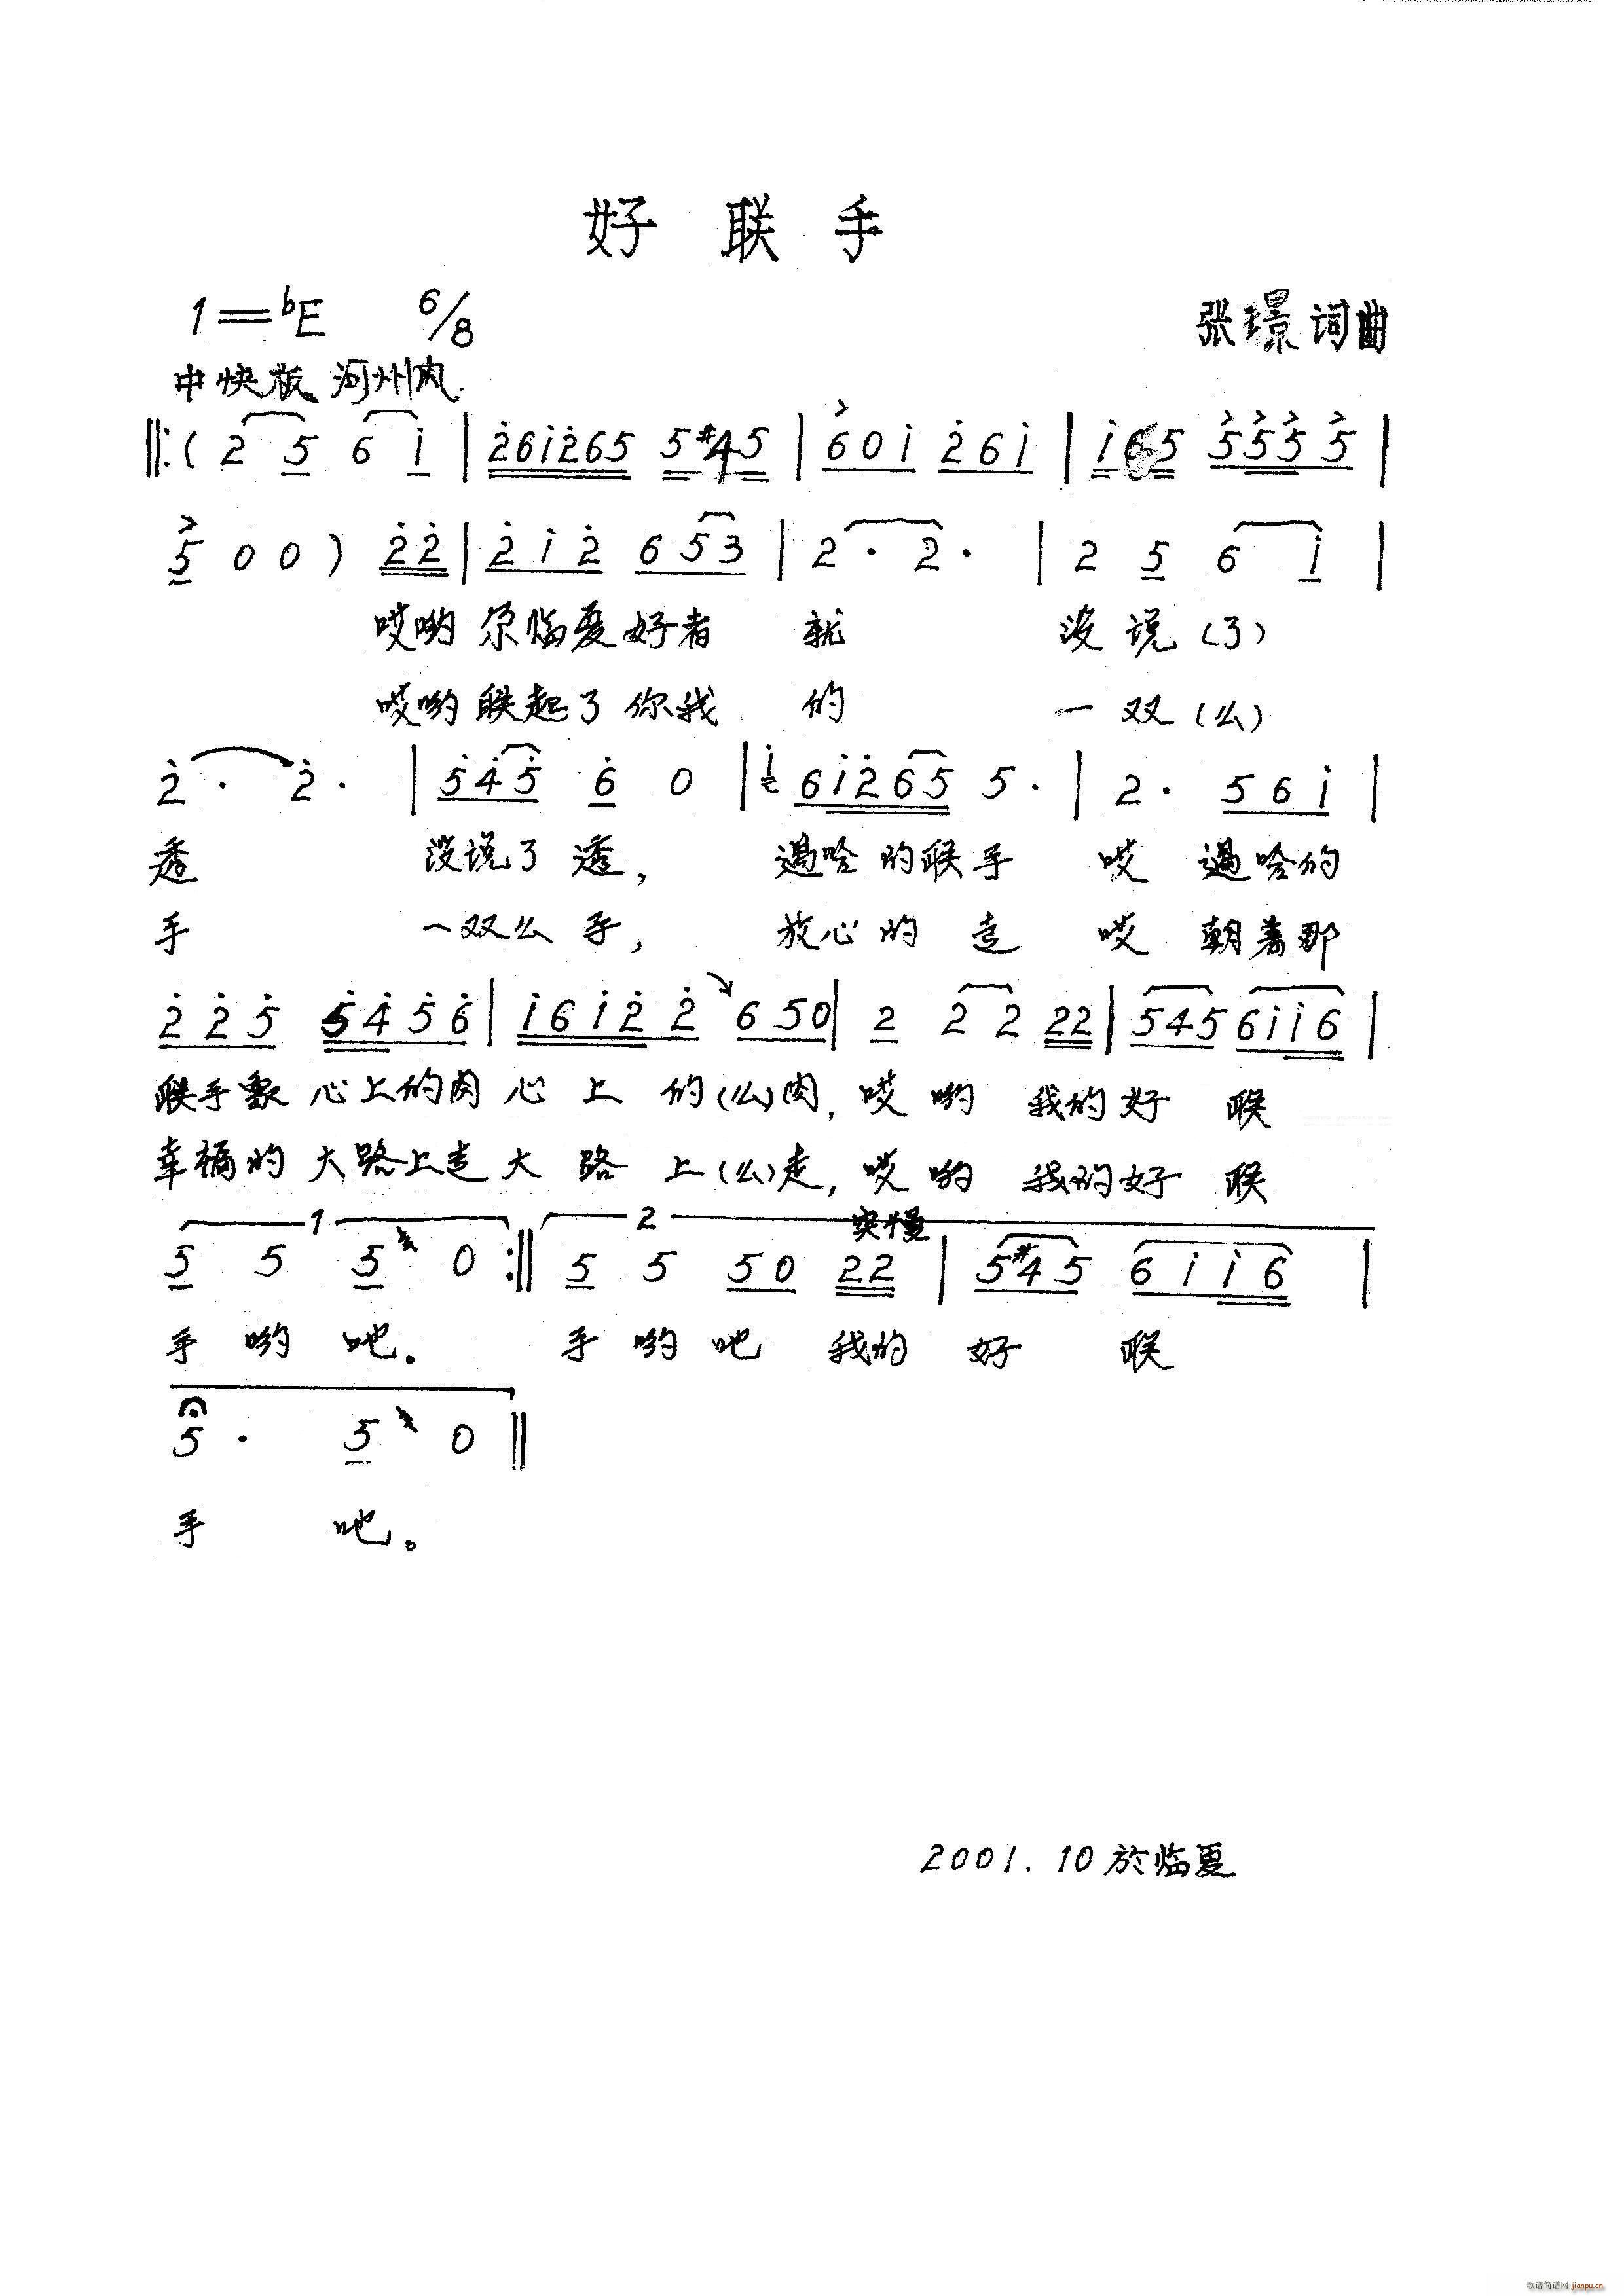 好 联 手
1=ᵇE 6/8
张璟词曲
中快板 河州风
‖:( 2 5 6 i | 261265 5#45 | 60i 26i | i65 5555 |
5 0 0 ) 22 | 2i2 653 | 2· 2· | 2 5 6 i |
哎哟 尕临夏好者 就 没说(了)
哎哟 联起了你我 的 一双(么)
2· 2· | 545 6 0 | i 6i265 5· | 2· 56i |
透 没说了透, 遇啥的联手 哎 遇啥的
手 一双么手, 放心的走 哎 朝着那
225 5456 | i6i2 2 650 | 2 2 2 22 | 545 6ii6 |
联手象 心上的肉 心上 的(么)肉, 哎哟 我的好 联
幸福的 大路上走 大路 上(么)走, 哎哟 我的好 联
1 2 突慢
5 5 5 0 :‖ 5 5 50 22 | 5#45 6ii6 |
手哟吧。 手哟吧 我的 好 联
5· 5 0 ‖
手 吧。
2001.10於临夏
歌谱简谱网 jianpu.cn